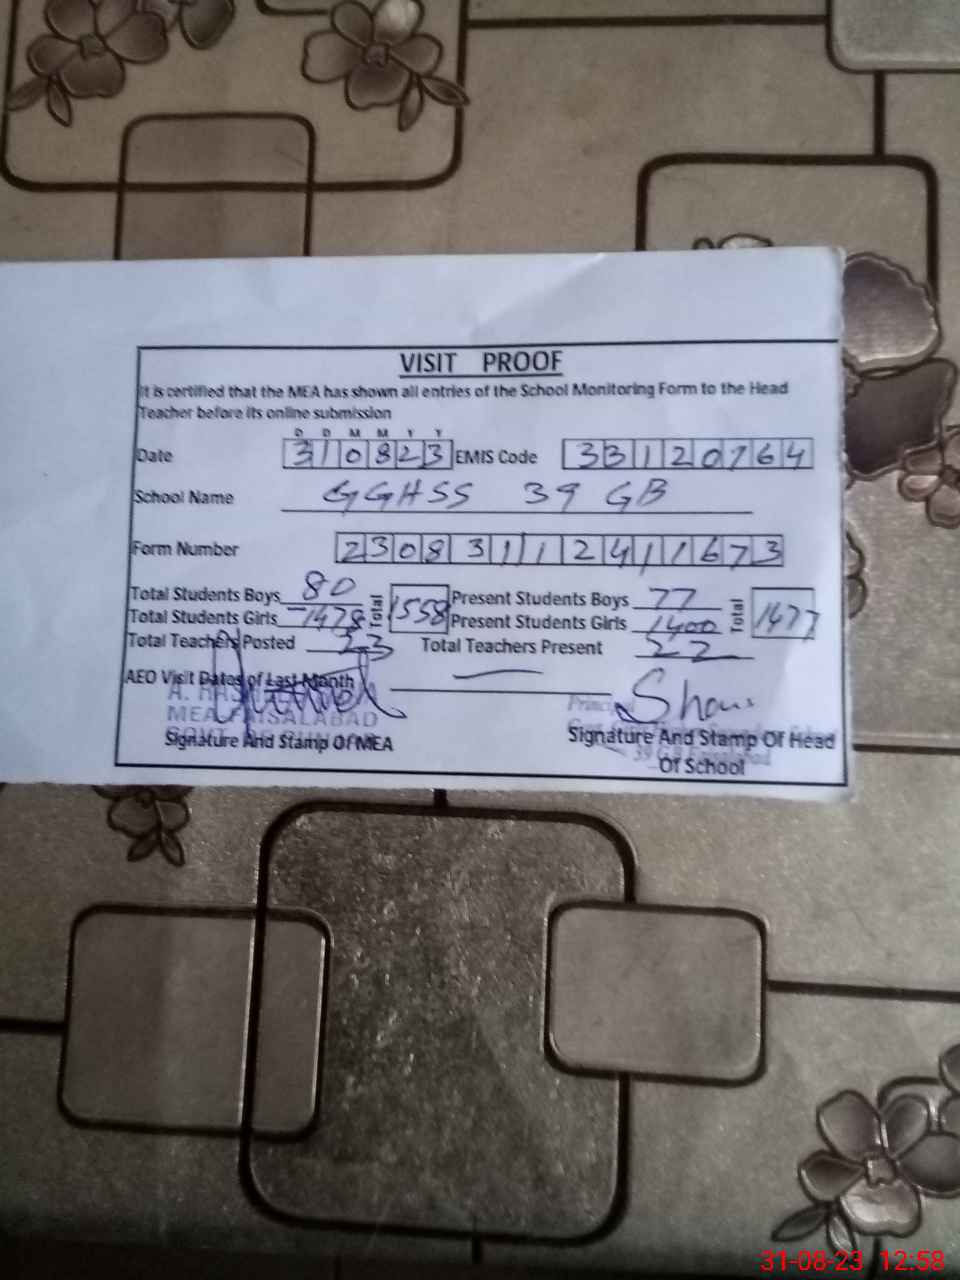 VISIT PROOF
It is certified that the MEA has shown all entries of the School Monitoring Form to the Head
Teacher before its online submission
D D M M Y Y
Date 310823 EMIS Code 33120764
School Name GGHSS 39 GB
Form Number 230831112411673
Total Students Boys 80 Total 1558 Present Students Boys 77 Total 1477
Total Students Girls 1478 Present Students Girls 1400
Total Teachers Posted 23 Total Teachers Present 22
AEO Visit Dates of Last Month —
MEA FAISALABAD Principal
Signature And Stamp Of MEA Signature And Stamp Of Head
Of School
31-08-23 12:58